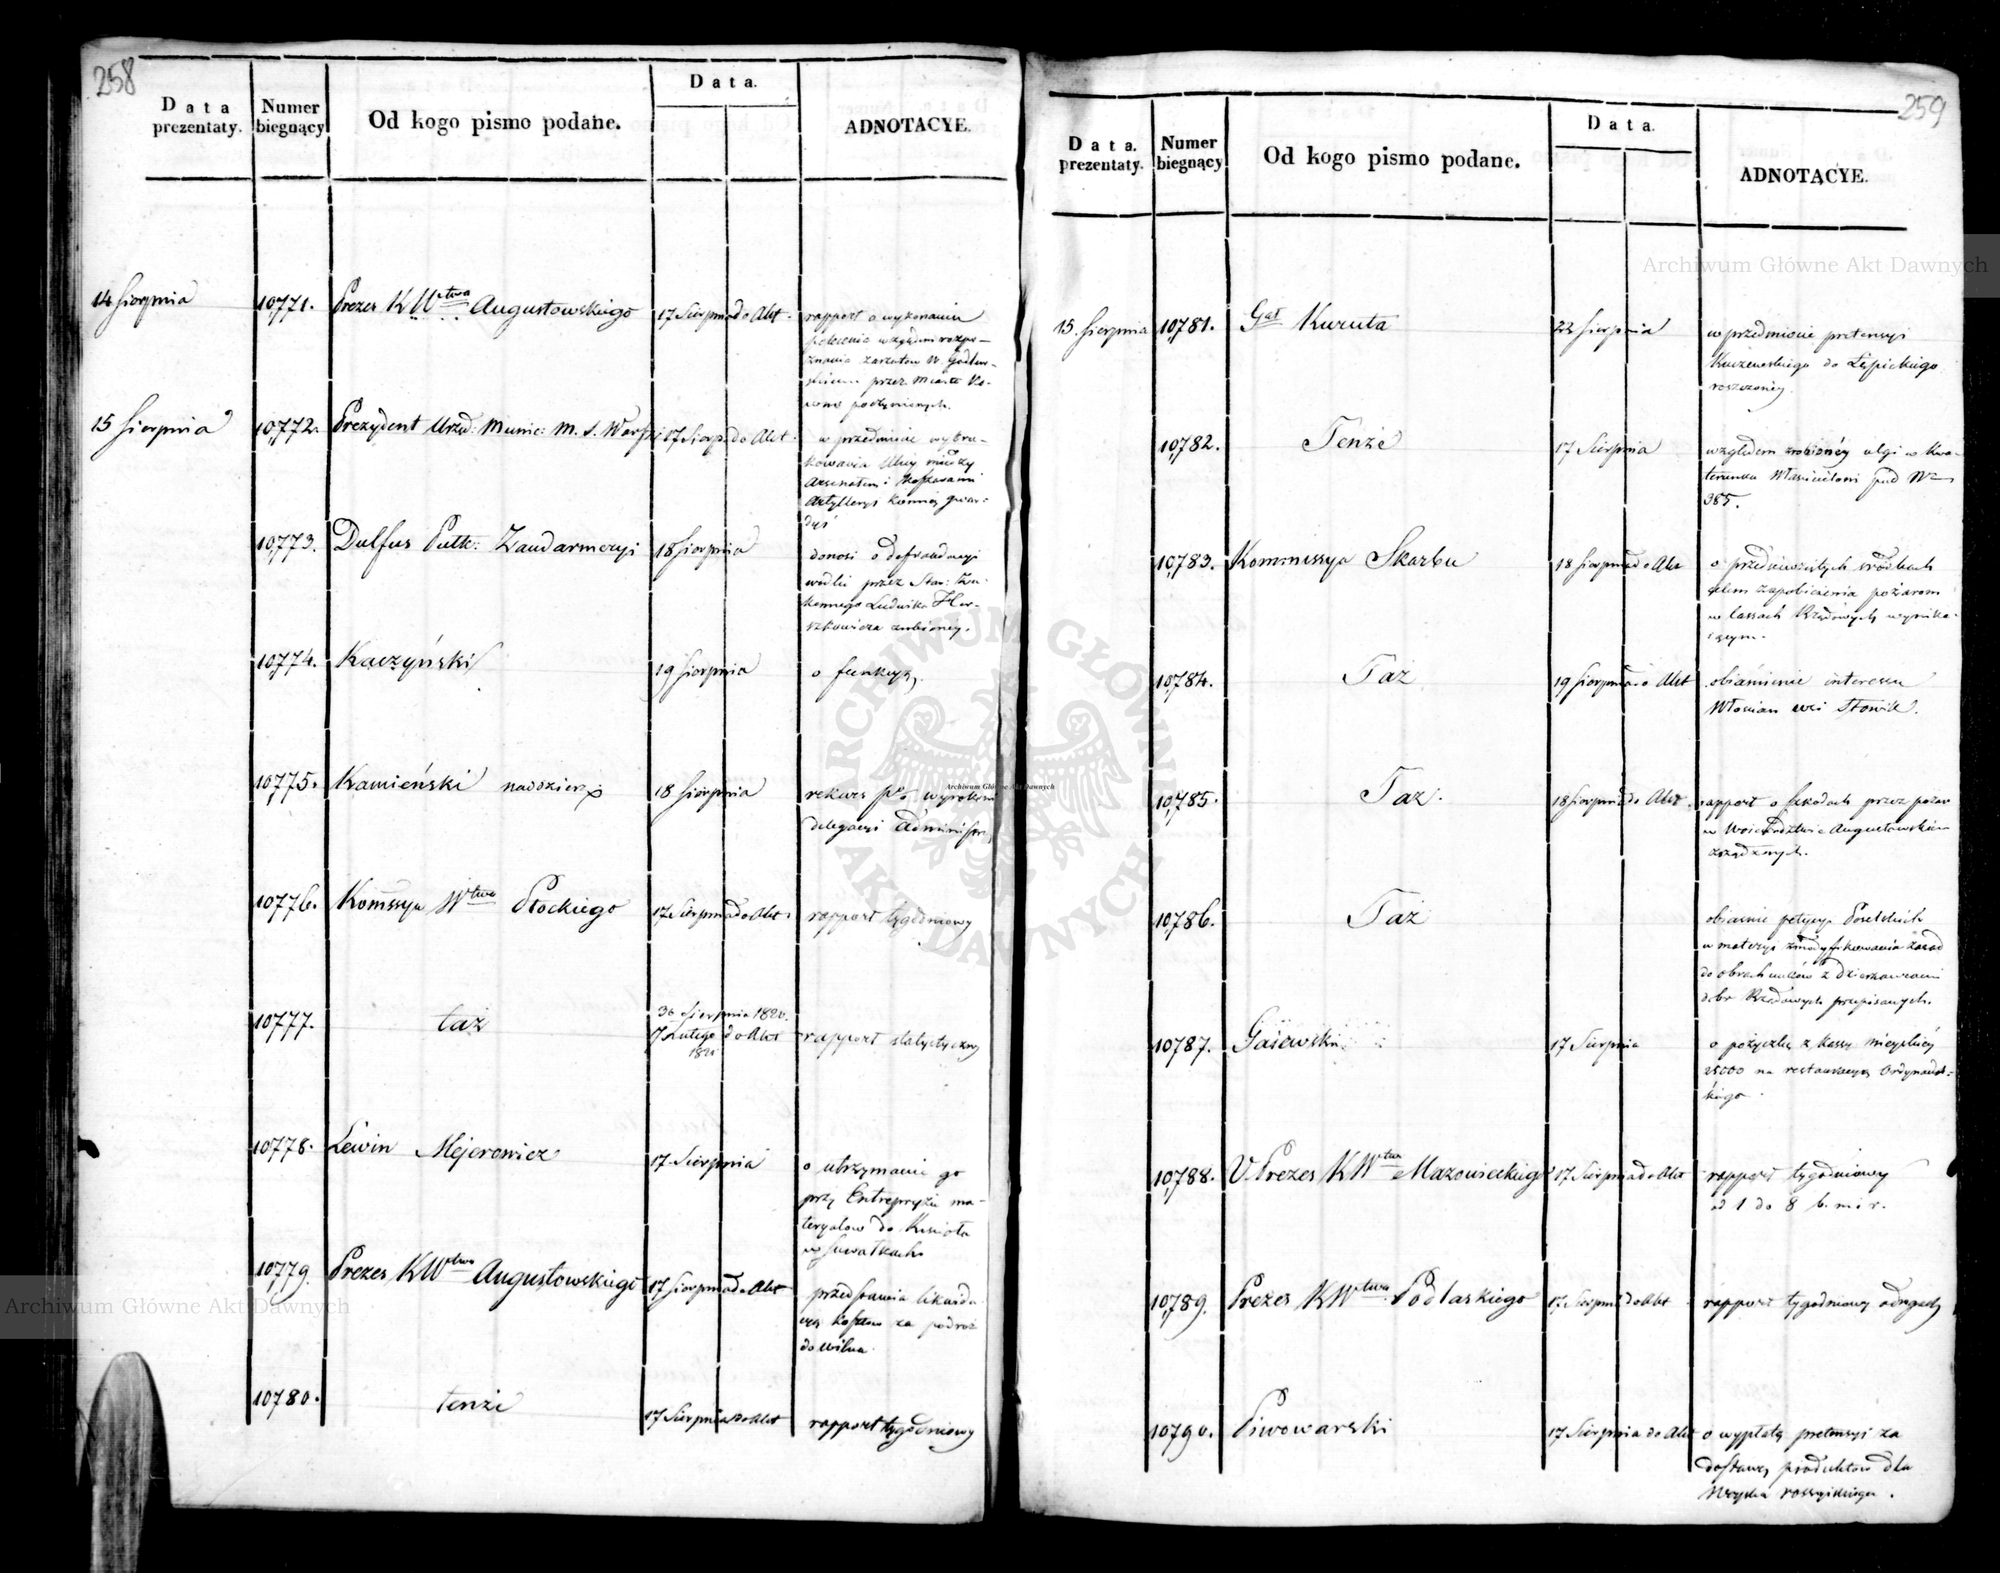 258
Data prezentaty.
Numer biegnący
Od kogo pismo podane.
Data.
ADNOTACYE.
14 Sierpnia 10,771. Prezes K Wtwa Augustowskiego 17 Sierpnia do Akt.
rapport o wykonaniu
polecenia względem rozpo-
znania zarzutów W. Godlew-
skiemu przez Miasto
15 Sierpnia 10,772. Prezydent Urzęd: Munic: M. S. Warsz: 17 Sierp. do Akt.
w przedmiocie wybru-
kowania Ulicy między
Arsenałem i Koszarami
Artylleryi Konnej gwar-
dyi
10,773. Dulfus Pułk: Żandarmeryi 18 Sierpnia
donosi o defraudacyi
wódki przez
Ludwika Her-
szkowicza zrobioney.
10,774. Kaczyński 19 Sierpnia
o funkcyą.
10,775. Kamieński 18 Sierpnia
rekurs pko wyrokowi
delegacyi Administr.
10,776. Kommssya Wtwa Płockiego 17 Sierpnia do Akt.
rapport tygodniowy
10,777. taż
30 Sierpnia 1820.
17 Lutego 1821 do Akt
rapport statystyczny
10,778. Lewin Mejerowicz 17 Sierpnia
o utrzymanie go
przy Entrepryzie ma-
teryałów do Kościoła
w Suwałkach
10,779. Prezes K Wtwa Augustowskiego 17 Sierpnia do Akt
przedstawia likwida-
cyą kosztów za podróż
do Wilna.
10,780. tenże 17 Sierpnia do Akt
rapport tygodniowy
259
Data. prezentaty.
Numer biegnący
Od kogo pismo podane.
Data.
ADNOTACYE.
15 Sierpnia 10,781. Gał Kuruta 22 Sierpnia
w przedmiocie pretensyi
do Łępickiego
roszczoney
10,782. Tenże 17 Sierpnia
względem zrobionéy ulgi w Kwa-
terunku Właścicielowi pod Nr
385.
10,783. Kommissya Skarbu 18 Sierpnia do Akt
o przedsięwziętych środkach
celem zapobieżenia pożarom
w lassach Rządowych wynika-
iącym.
10,784. Taż 19 Sierpnia do Akt
obiaśnienie interessu
Włościan wsi Słowik.
10,785. Taż. 18 Sierpnia do Akt.
rapport o szkodach przez pożar
w Woiewództwie Augustowskiem
zrządzonych.
10,786. Taż
obiaśnie petycyą Poselskich
w materyi zmodyfikowania zasad
do obrachunków z dzierżawcami
dóbr Rządowych przepisanych.
10,787. Gaiewski 17 Sierpnia
o pożyczkę z kassy mieyskiéy
25000 na restauracyą Ordynack-
kiego.
10,788. V. Prezes K Wtwa Mazowieckiego 17 Sierpnia do Akt
rapport tygodniowy
od 1 do 8 b. m i r.
10,789. Prezes K Wtwa Podlaskiego 17 Sierpnia do Akt
rapport tygodniowy
10,790. Piwowarski 17 Sierpnia do Akt
o wypłatę pretensyi za
dostawę produktów dla
Woyska rossyiskiego.
Archiwum Główne Akt Dawnych
Archiwum Główne Akt Dawnych
Archiwum Główne Akt Dawnych
ARCHIWUM GŁÓWNE AKT DAWNYCH